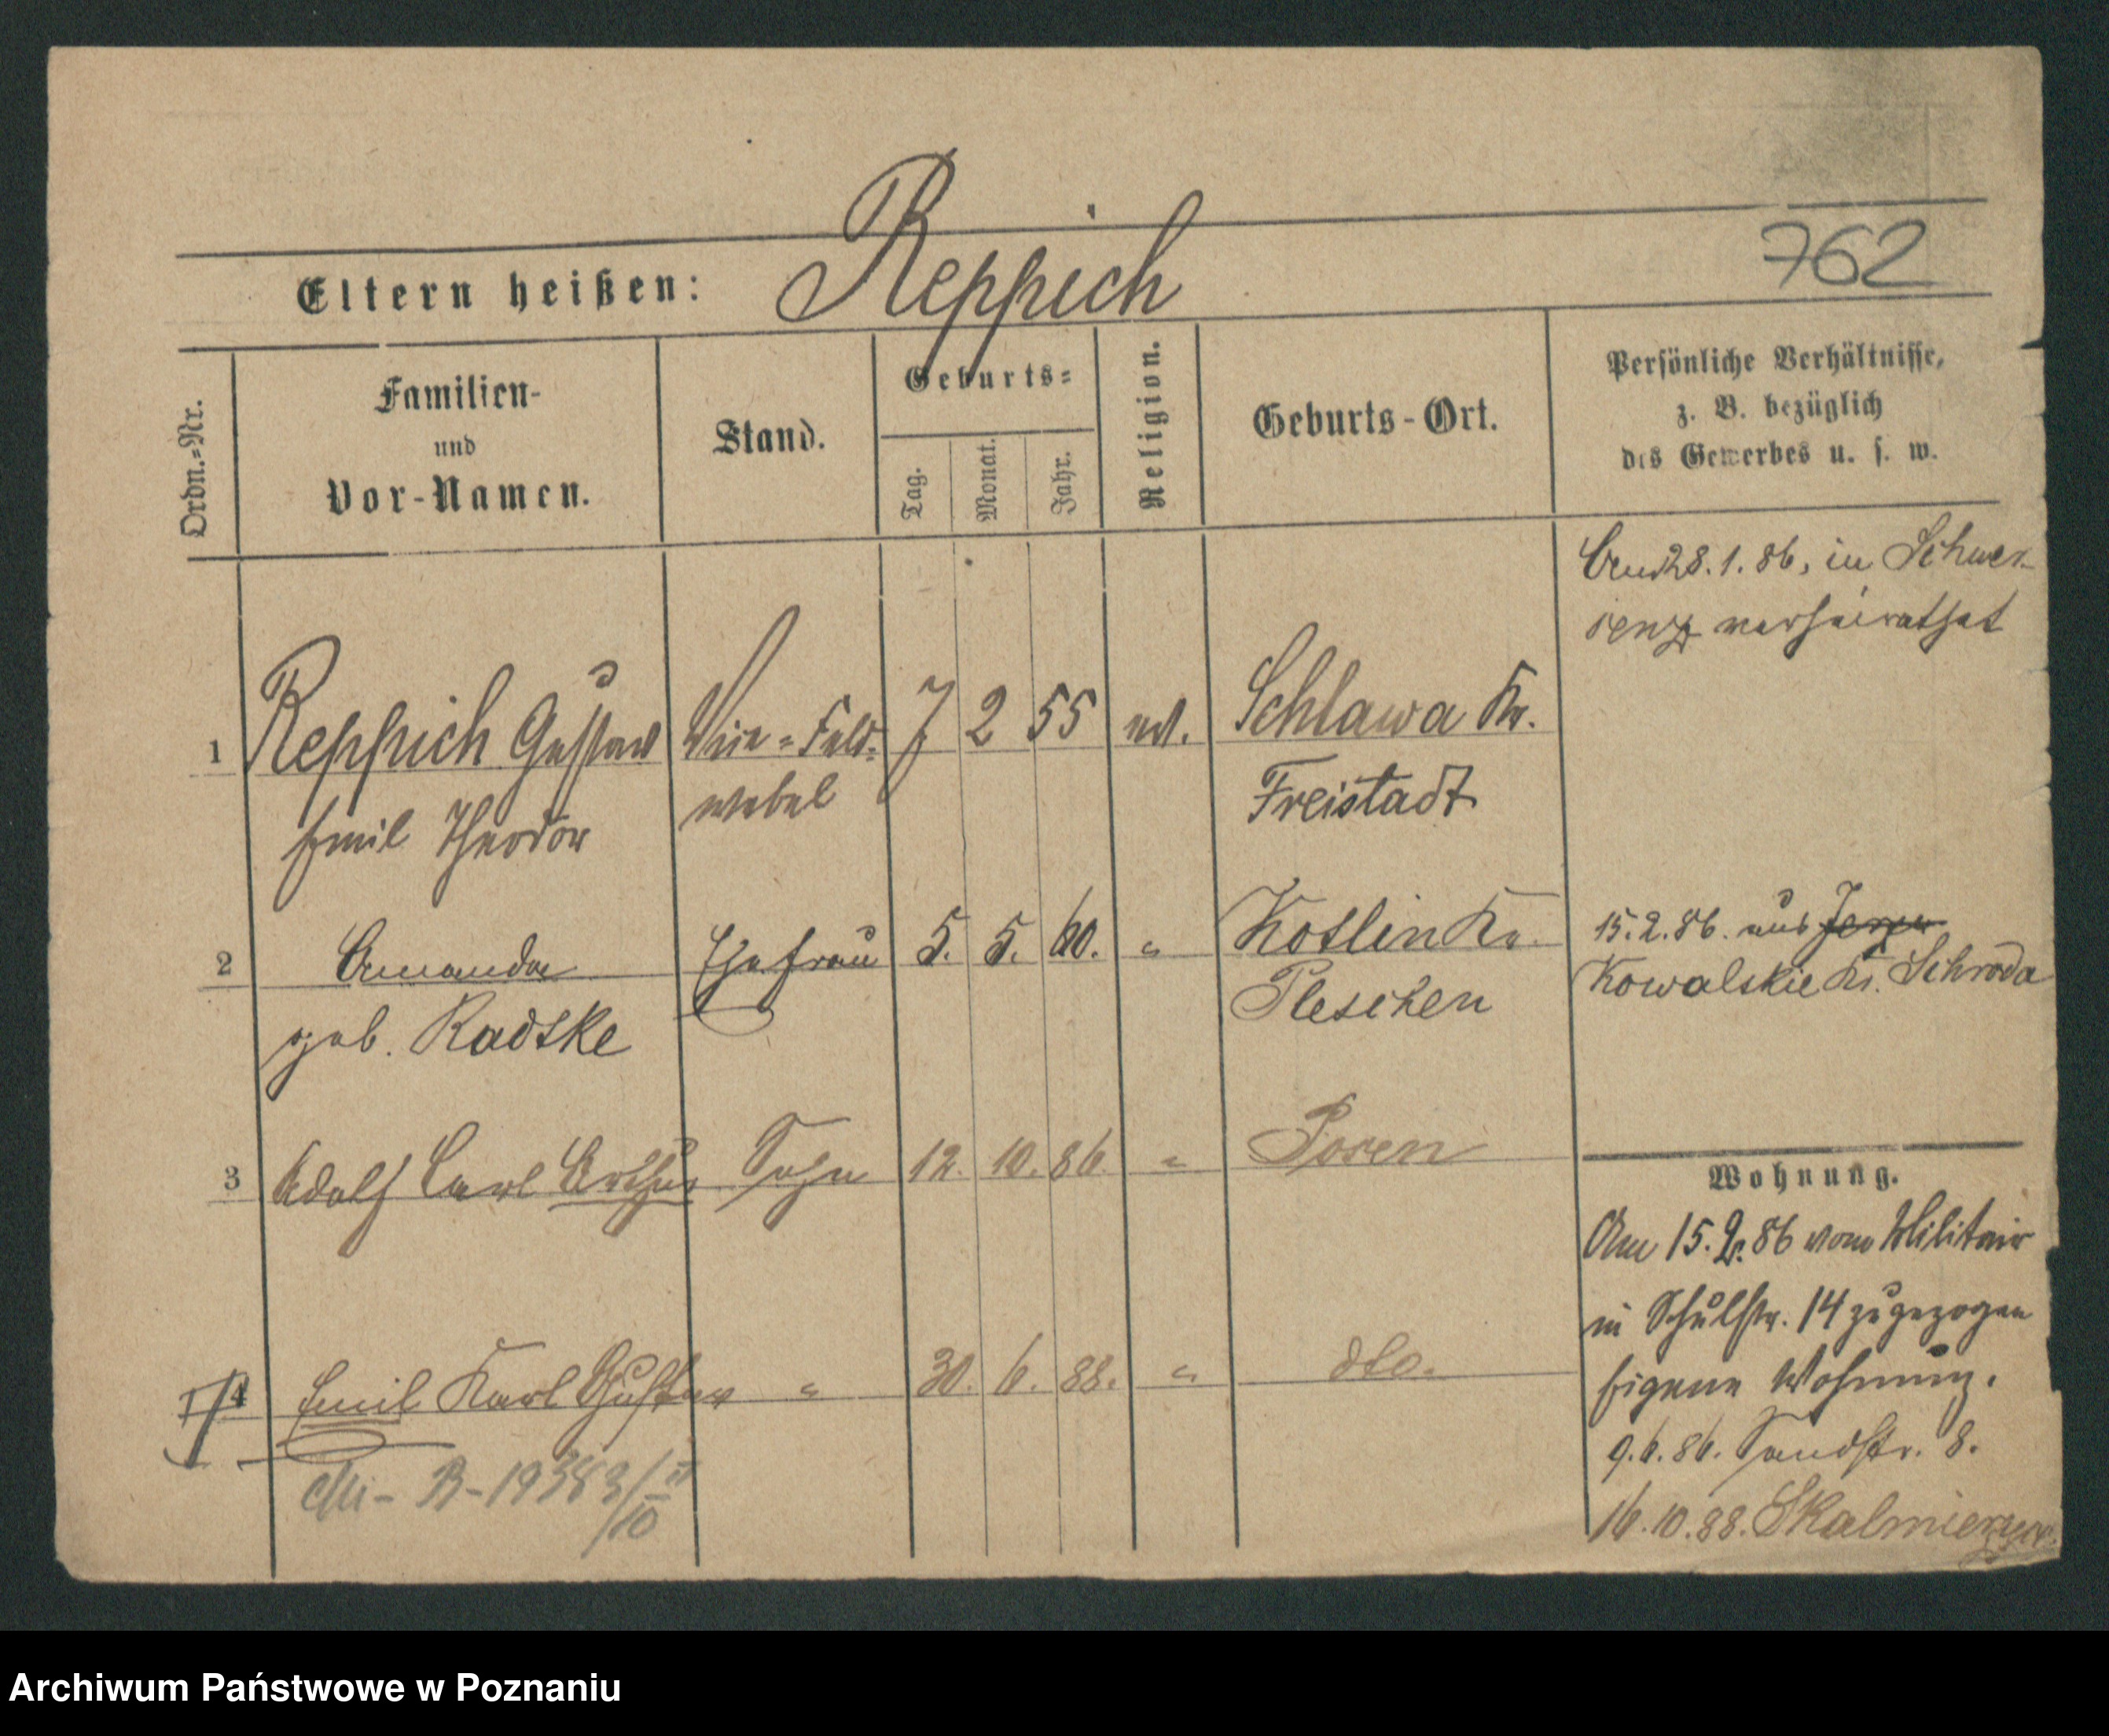 762
Eltern heißen: Reppich
Ordn.-Nr.
Familien-
und
Vor-Namen.
Stand.
Geburts-
Tag.
Monat.
Jahr.
Religion.
Geburts-Ort.
Persönliche Verhältnisse,
z. B. bezüglich
des Gewerbes u. s. w.
28.1.86, in Schwer-
senz verheirathet
1 Reppich Gustav Vice-Feld- 7 2 55 ev. Schlawa Kr.
Emil Theodor webel Freistadt
2 Amanda Ehefrau 5. 5. 60. " Kotlin Kr. 15.2.86. aus
geb. Radtke Pleschen Kowalskie Kr. Schroda
3 Adolf Carl Arthur Sohn 12. 10. 86. " Posen
4 Emil Karl Gustav " 30. 6. 88. " dto.
B-19383/II
/10
Wohnung.
Am 15.2.86 vom Militair
in Schulstr. 14 zugezogen
Eigene Wohnung.
9.6.86. Sandstr. 8.
16.10.88. Skalmierzyce.
Archiwum Państwowe w Poznaniu